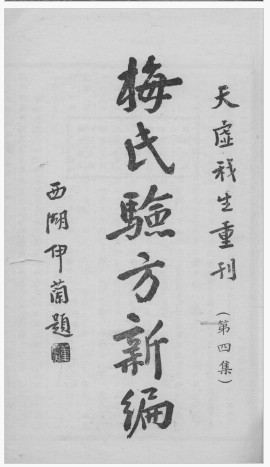 天虛我生重刊(第四集)
梅氏驗方新編
西湖伊蘭題